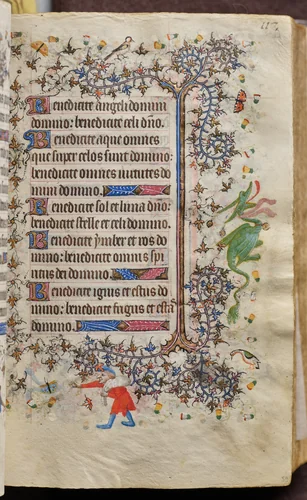 117
Benedicite angeli domini
domino: benedicite celi dño.
Benedicite aque omnes
que super celos sunt domino:
benedicite omnes uirtutes do
mini domino.
Benedicite sol et luna dño:
benedicite stelle et celi domino.
Benedicite ymber et ros do
mino: benedicite omnis spi
ritus dei domino.
Benedicite ignis et estus do
mino: benedicite frigus et esta
domino.